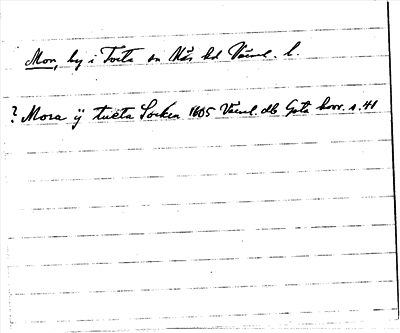 Mon, by i Torta sn Näs hd Värml. l.
? Mora ÿ tueta Socken 1605 Värml. db Göta hovr. s. 41